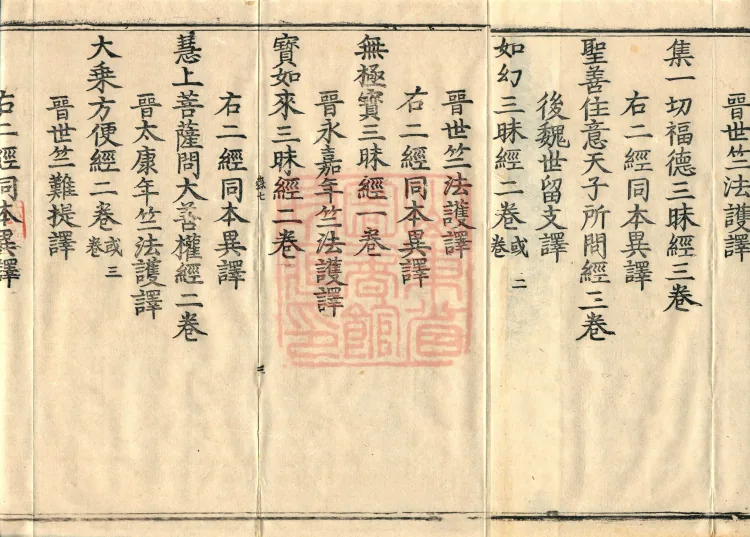 晉世竺法護譯
集一切福德三昧經三卷
右二經同本異譯
聖善住意天子所問經三卷
後魏世留支譯
如幻三昧經二卷 或二卷
晉世竺法護譯
右二經同本異譯
無極寶三昧經一卷
晉永嘉年竺法護譯
寶如來三昧經二卷
右二經同本異譯
慧上菩薩問大善權經二卷
晉太康年竺法護譯
大乗方便經二卷 或三卷
晉世竺難提譯
右二經同本異譯